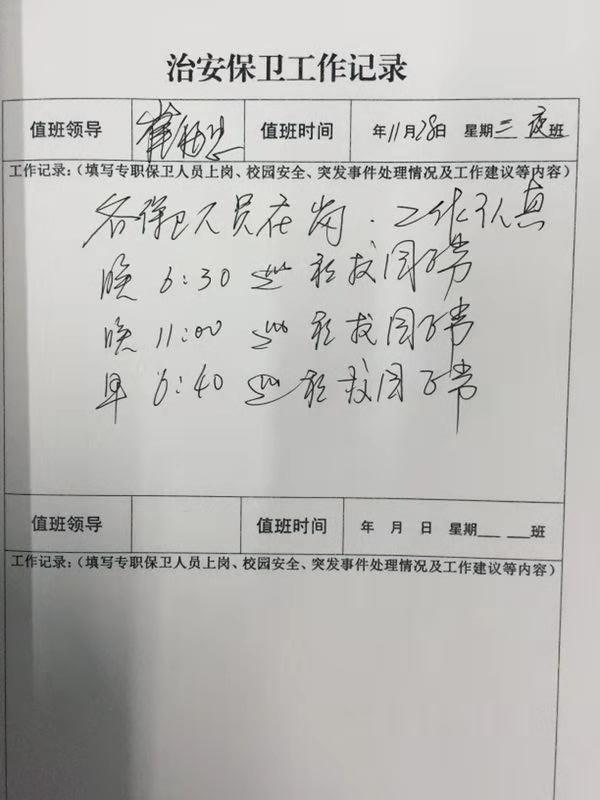 治安保卫工作记录
值班领导 崔 值班时间 年11月28日 星期三 夜班
工作记录:(填写专职保卫人员上岗、校园安全、突发事件处理情况及工作建议等内容)
各保卫人员在岗.工作认真
晚 6:30 巡视校园正常
晚 11:00 巡视校园正常
早 6:40 巡视校园正常
值班领导 值班时间 年 月 日 星期___ ___班
工作记录:(填写专职保卫人员上岗、校园安全、突发事件处理情况及工作建议等内容)